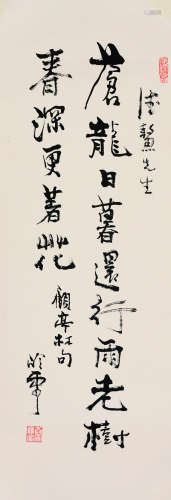 先生
蒼龍日暮還行雨老樹
春深更著花
顧亭林句